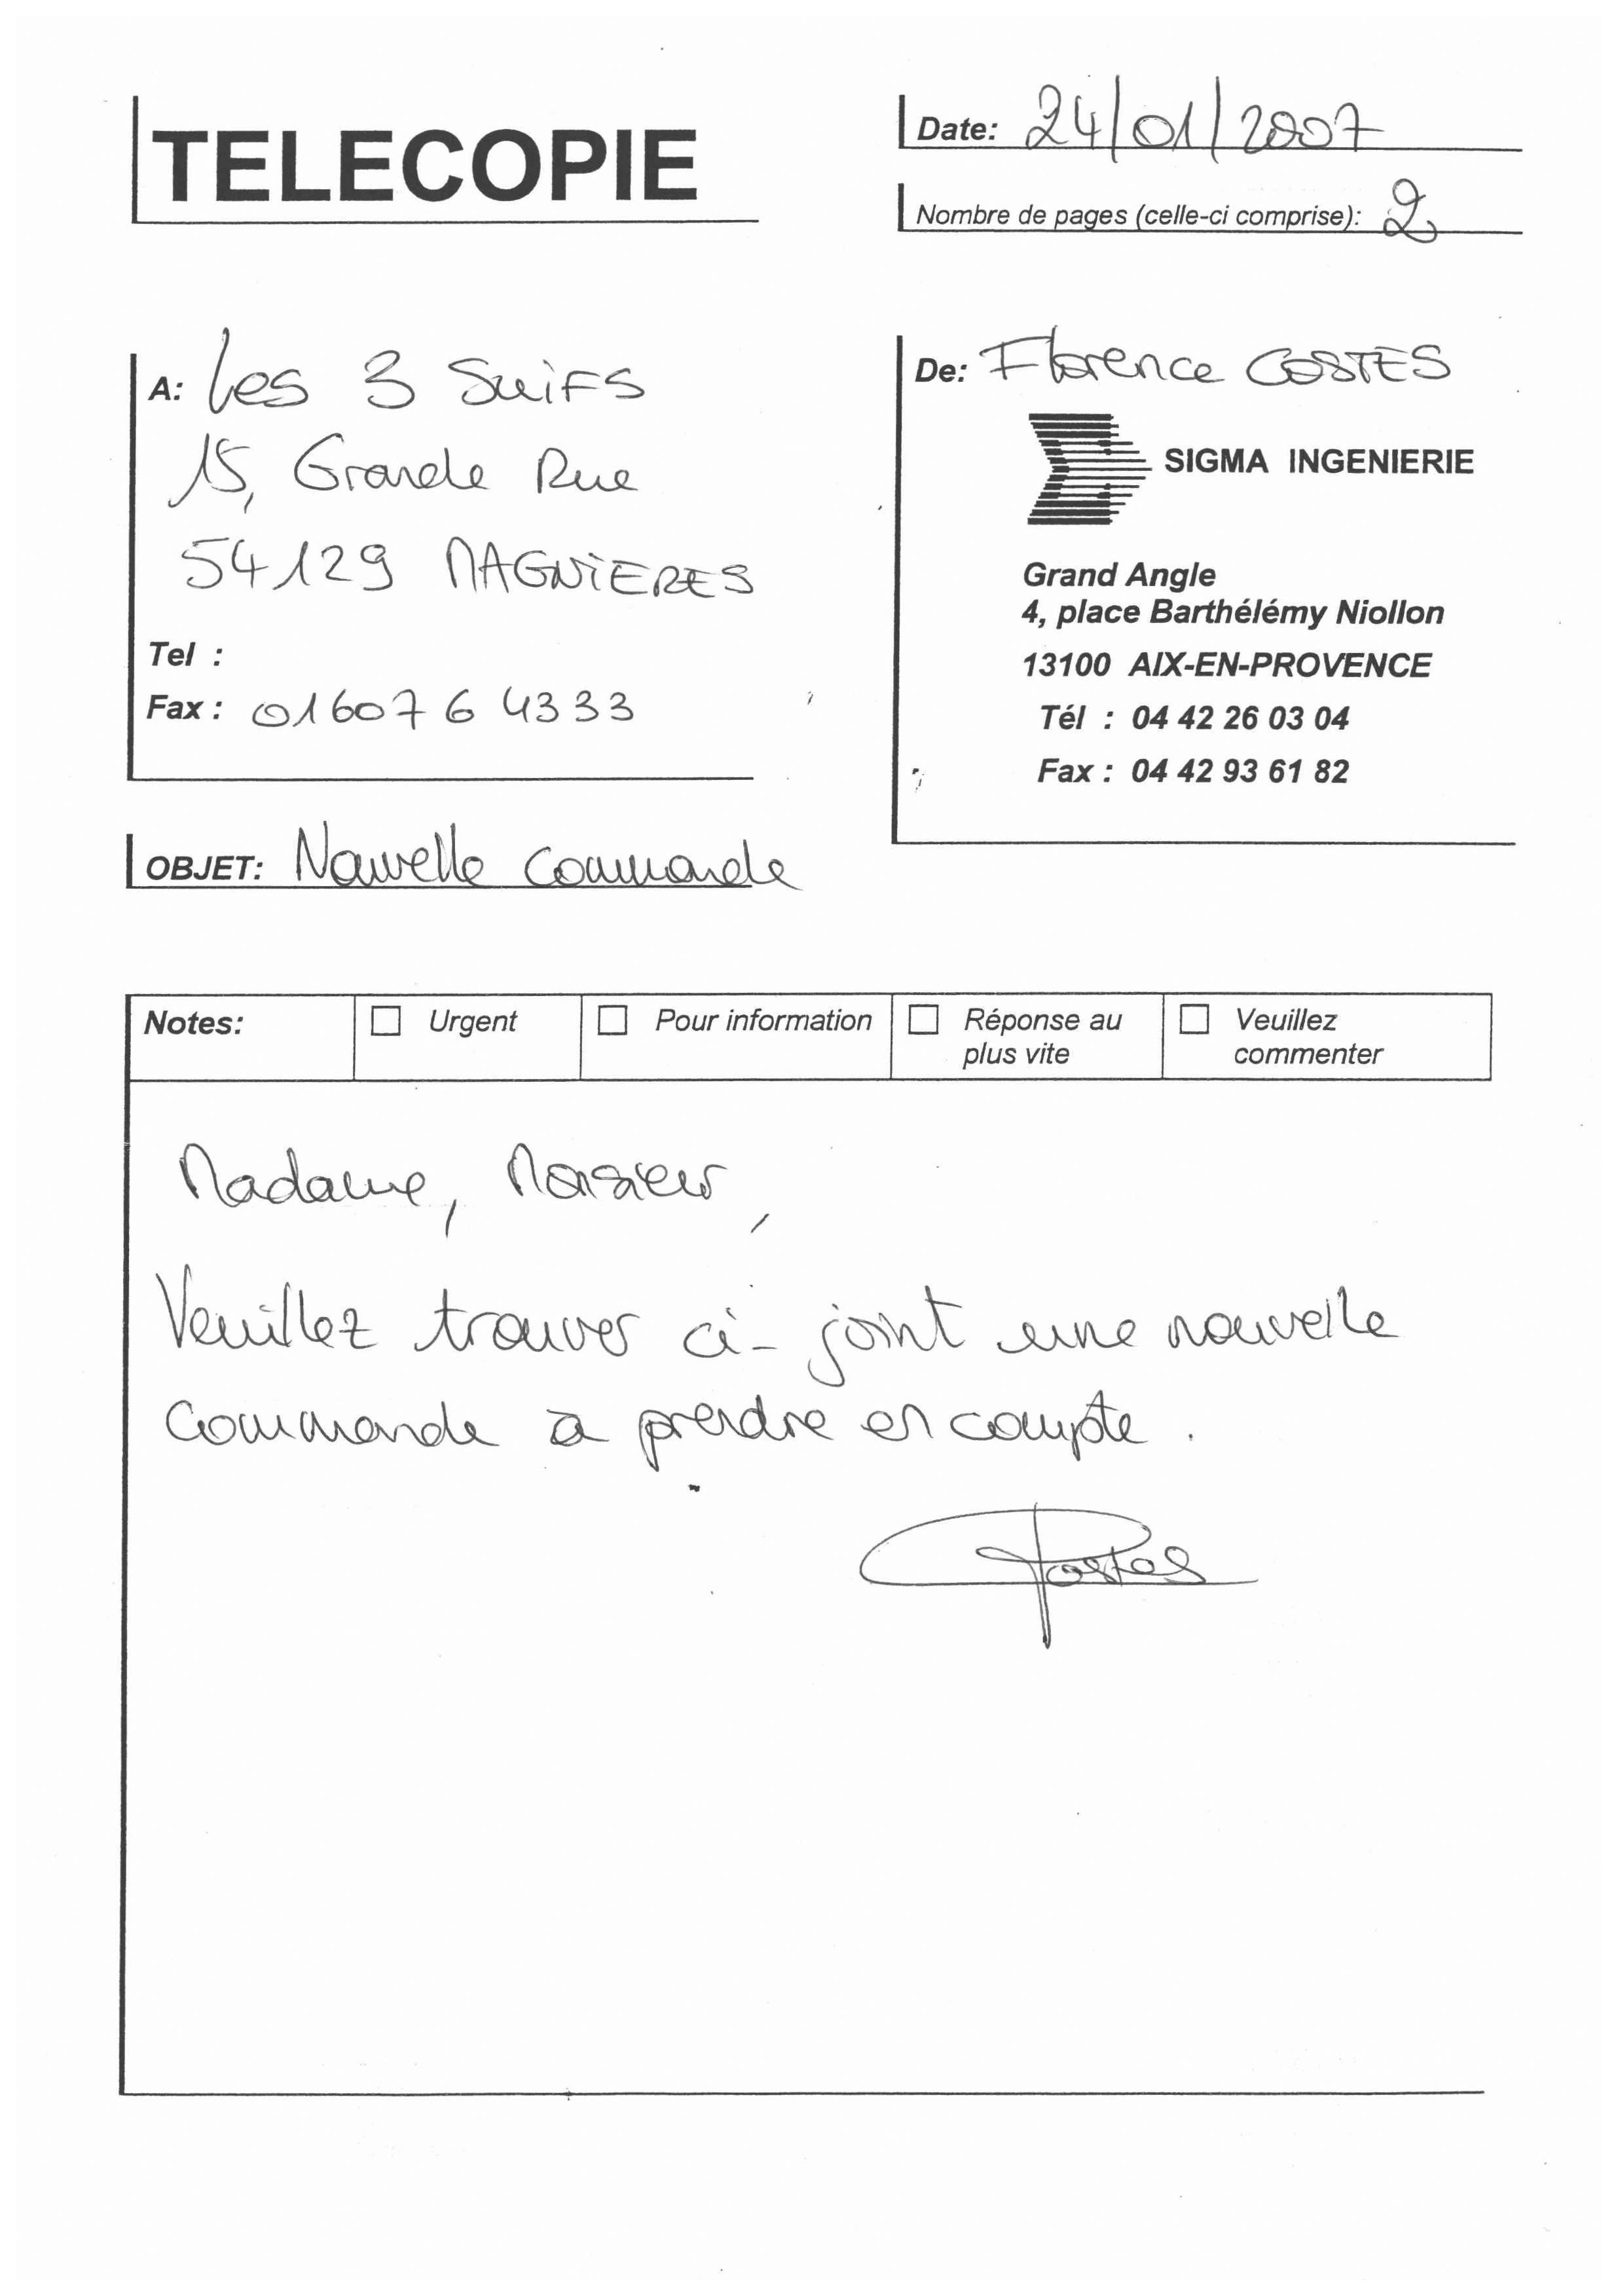 TELECOPIE
Date: 24/01/2007
Nombre de pages (celle-ci comprise): 2
A: Les 3 SuiFS
15, Grande Rue
54129 MAGNIERES
Tel :
Fax : 0160764333
De: Florence COSTES
SIGMA INGENIERIE
Grand Angle
4, place Barthélémy Niollon
13100 AIX-EN-PROVENCE
Tél : 04 42 26 03 04
Fax : 04 42 93 61 82
OBJET: Nouvelle Commande
Notes:
Urgent
Pour information
Réponse au
plus vite
Veuillez
commenter
Madame, Monsieur,
Veuillez trouver ci-joint une nouvelle
commande à prendre en compte.
Costes